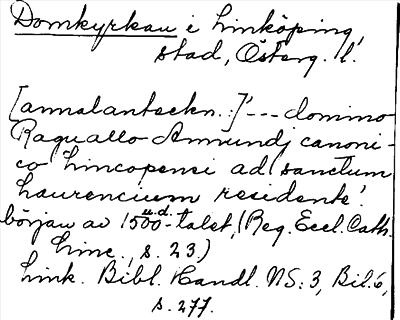 Domkyrkan i Linköping,
stad, Österg. l.
[annalanteckn.:]'--- domino
Raguallo Amundj canoni-
co Lincopensi ad sanctum
Laurencium residente'.
början av 1500-talet, (Reg. Eccl. Cath.
Linc., s. 23)
Link. Bibl. Handl. NS: 3, Bil. 6,
s. 277.